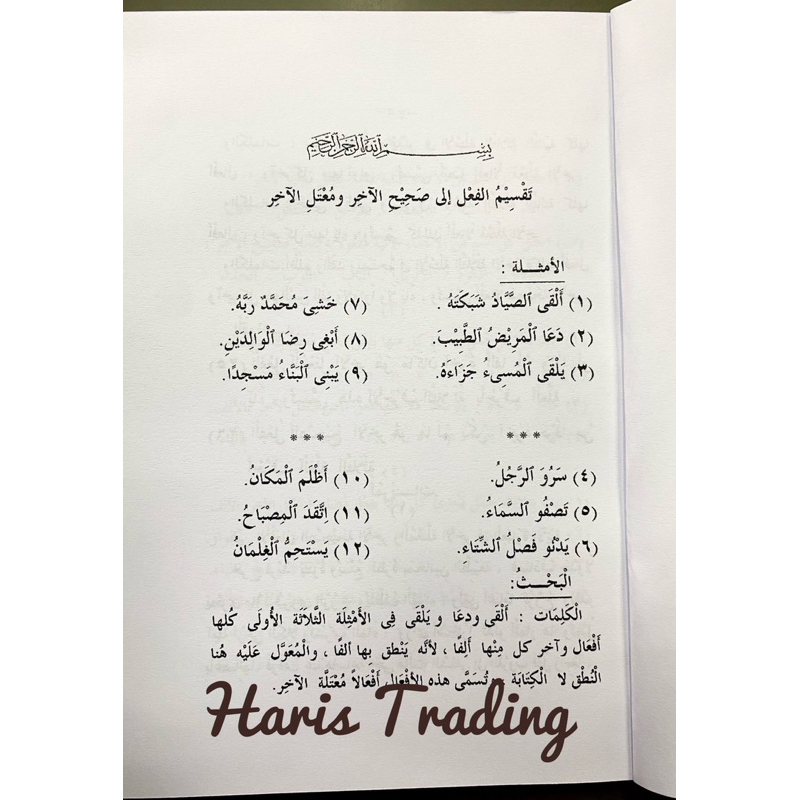 بِسْمِ ٱللَّهِ ٱلرَّحْمَٰنِ ٱلرَّحِيمِ
تَقْسِيْمُ الفِعْل إلى صَحِيْحِ الآخِرِ ومُعْتَلِ الآخِر
الأمثـلـة :
(١) أَلْقَى ٱلصَّيَّادُ شَبَكَتَهُ .
(٢) دَعَا ٱلْمَرِيْضُ ٱلطَّبِيْبَ.
(٣) يَلْقَى ٱلْمُسِىءُ جَزَاءَهُ.
(٧) خَشِىَ مُحَمَّدٌ رَبَّهُ.
(٨) أَبْغِى رِضَا ٱلْوَالِدَيْنِ.
(٩) يَبْنِى ٱلْبَنَّاءُ مَسْجِدًا.
***
***
(٤) سَرُوَ ٱلرَّجُلُ.
(٥) تَصْفُو ٱلسَّمَاءُ.
(٦) يَدْنُو فَصْلُ ٱلشِّتَاءِ.
(١٠) أَظْلَمَ ٱلْمَكَانُ.
(١١) اِتَّقَدَ ٱلْمِصْبَاحُ.
(١٢) يَسْتَحِمُّ ٱلْغِلْمَانُ
الْبَحْثُ:
الْكَلِمَات : أَلْقَى ودعَا و يَلْقَى فِى الأَمْثِلَة الثَّلاَثَة الأُولَى كُلها
أفْعَال وآخر كل مِنْها أَلِفًا ، لأنَّه يَنْطق بِها ألفًا ، والْمُعَوَّل عَلَيْه هُنا
النُطْق لا الْكِتَابَة وتُسَمَّى هذه الأفْعَال أفْعَالاً مُعْتَلَّة الآخِر.
Haris Trading